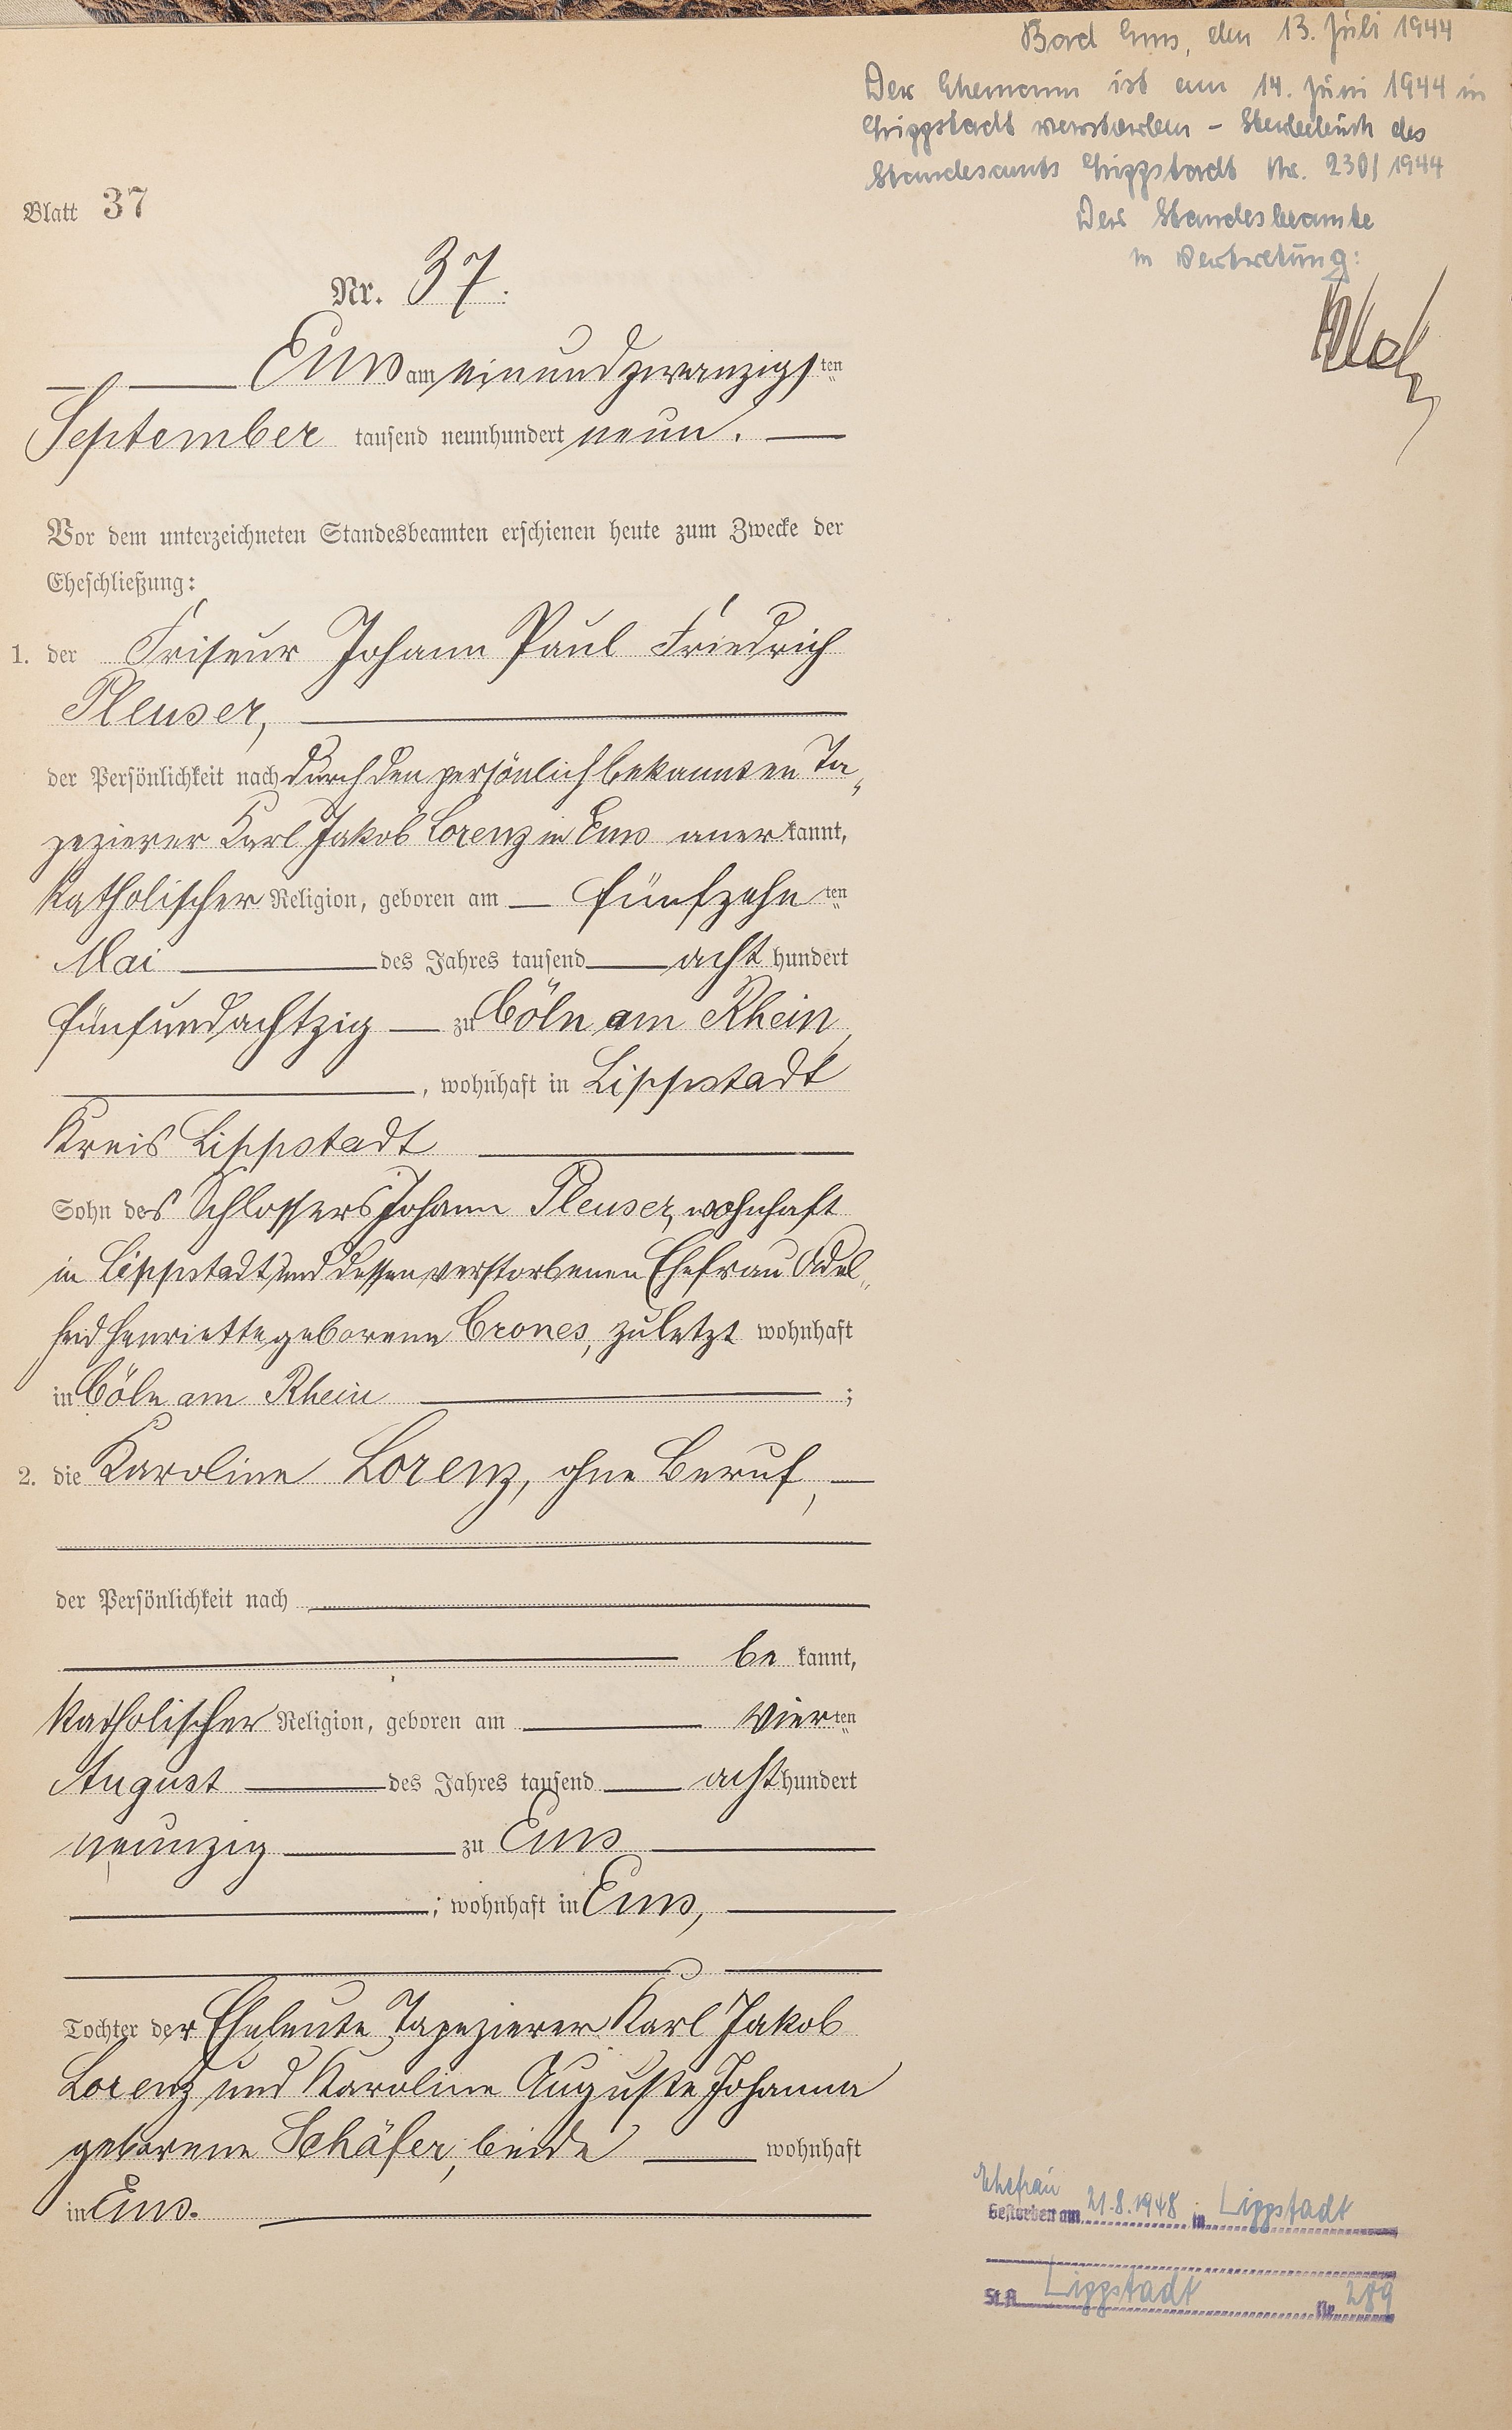 Bad Ems, den 13. Juli 1944
Der Ehemann ist am 14. Juni 1944 in
Lippstadt verstorben - Sterbebuch des
Standesamts Lippstadt Nr. 230/1944
Der Standesbeamte
in Vertretung:
Blatt 37
Nr. 37.
Ems am einundzwanzigsten
September tausend neunhundert neun.
Vor dem unterzeichneten Standesbeamten erschienen heute zum Zwecke der
Eheschließung:
1. der Friseur Johann Paul Friedrich
Pleuser,
der Persönlichkeit nach durch den persönlich bekannten Ta-
pezierer Karl Jakob Lorenz in Ems anerkannt,
katholischer Religion, geboren am fünfzehnten
Mai des Jahres tausend acht hundert
fünfundachtzig zu Cöln am Rhein,
, wohnhaft in Lippstadt
Kreis Lippstadt
Sohn des Schlossers Johann Pleuser, wohnhaft
in Lippstadt und dessen verstorbenen Ehefrau Adel-
heid Henriette geborene Crones, zuletzt wohnhaft
in Cöln am Rhein ;
2. die Karoline Lorenz, ohne Beruf,
der Persönlichkeit nach
be kannt,
katholischer Religion, geboren am vierten
August des Jahres tausend acht hundert
neunzig zu Ems
; wohnhaft in Ems,
Tochter der Eheleute Tapezierer Karl Jakob
Lorenz und Karoline Auguste Johanna
geborene Schäfer, beide wohnhaft
in Ems.
Ehefrau
Gestorben am 21.8.1948 in Lippstadt
St.A. Lippstadt Nr. 289